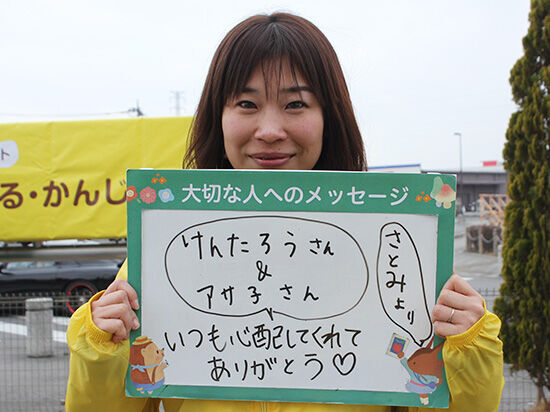 ト
る・かんじ
大切な人へのメッセージ
けんたろうさん
&
アサ子さん
さとみより
いつも心配してくれて
ありがとう♡